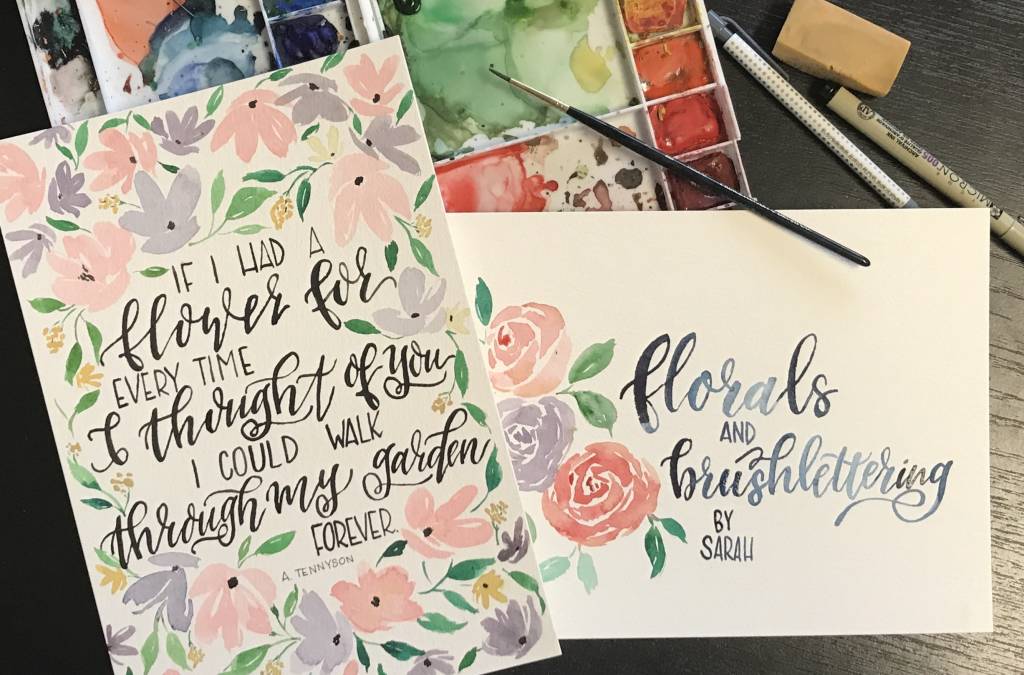 IF I HAD A
flower for
EVERY TIME
I thought of you
I COULD WALK
through my garden
FOREVER.
A. TENNYSON
florals
AND
brushlettering
BY
SARAH
MICRON 005